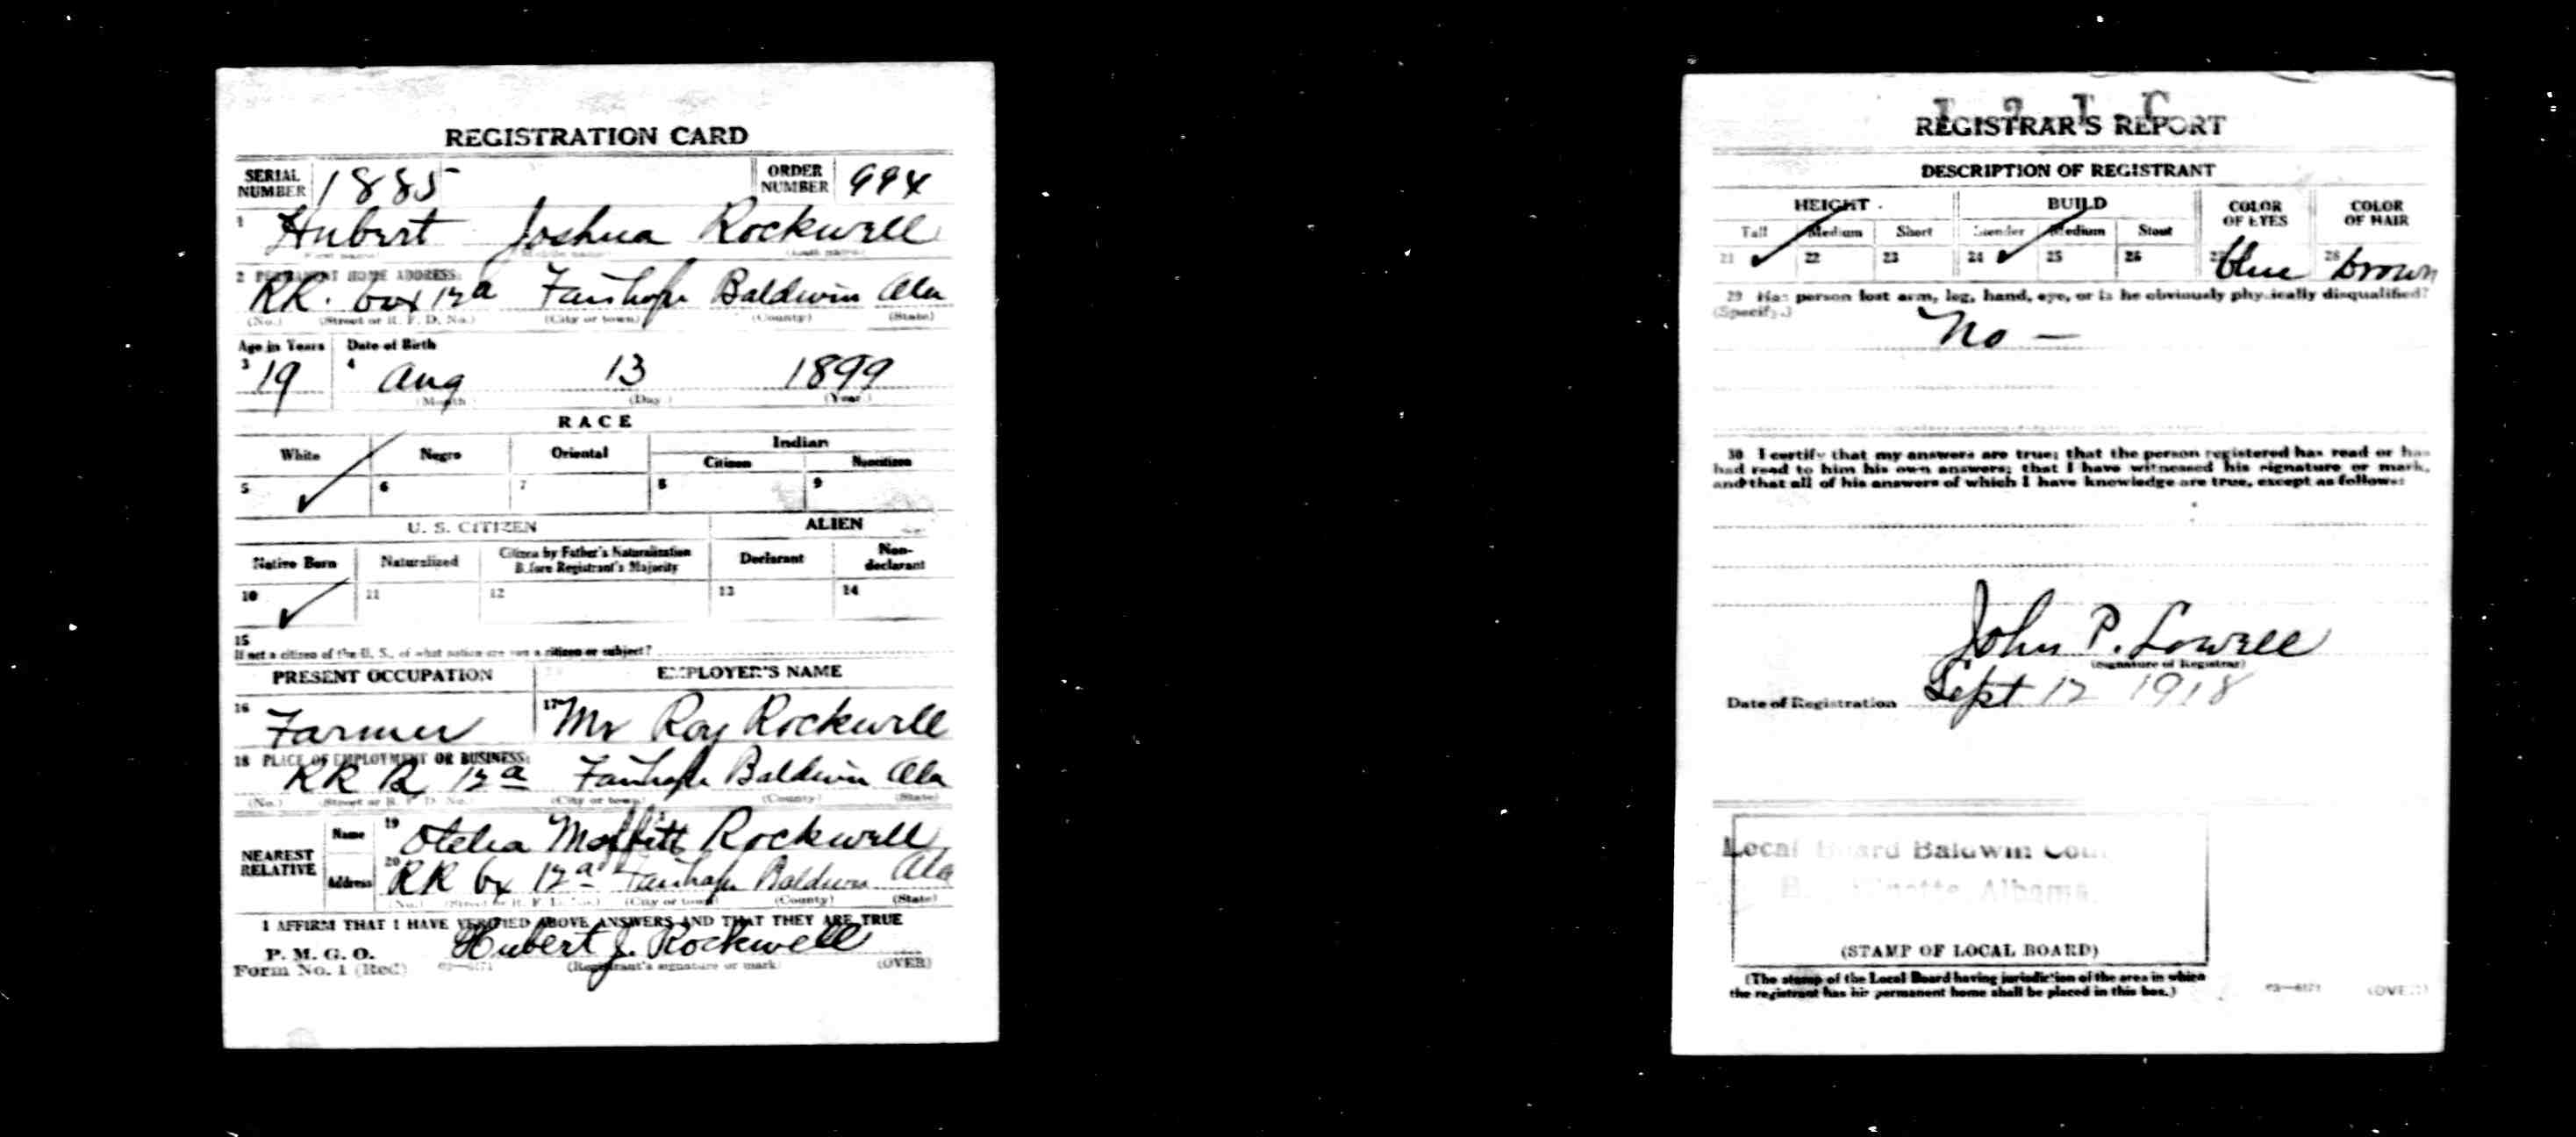 REGISTRATION CARD
SERIAL NUMBER 1885 ORDER NUMBER 994
1 Hubert Joshua Rockwell
(First name) (Middle name) (Last name)
2 PERMANENT HOME ADDRESS:
RR. box 12a Fairhope Baldwin Ala
(No.) (Street or R. F. D. No.) (City or town) (County) (State)
Age in Years Date of Birth
3 19 4 Aug 13 1899
(Month) (Day) (Year)
RACE
White Negro Oriental Indian
Citizen Noncitizen
5 ✓ 6 7 8 9
U. S. CITIZEN ALIEN
Native Born Naturalized Citizen by Father's Naturalization Before Registrant's Majority Declarant Non-declarant
10 ✓ 11 12 13 14
15
If not a citizen of the U. S., of what nation are you a citizen or subject?
PRESENT OCCUPATION EMPLOYER'S NAME
16 Farmer 17 Mr Roy Rockwell
18 PLACE OF EMPLOYMENT OR BUSINESS:
RR B 12a Fairhope Baldwin Ala
(No.) (Street or R. F. D. No.) (City or town) (County) (State)
NEAREST RELATIVE
Name 19 Otelia Moffitt Rockwell
Address 20 RR bx 12a Fairhope Baldwin Ala
(No.) (Street or R. F. D. No.) (City or town) (County) (State)
I AFFIRM THAT I HAVE VERIFIED ABOVE ANSWERS AND THAT THEY ARE TRUE
P. M. G. O.
Form No. 1 (Red) 03—6171 Hubert J. Rockwell
(Registrant's signature or mark) (OVER)
REGISTRAR'S REPORT
DESCRIPTION OF REGISTRANT
HEIGHT BUILD COLOR OF EYES COLOR OF HAIR
Tall Medium Short Slender Medium Stout
21 ✓ 22 23 24 ✓ 25 26 27 blue 28 brown
29 Has person lost arm, leg, hand, eye, or is he obviously physically disqualified?
(Specify.)
No —
30 I certify that my answers are true; that the person registered has read or has
had read to him his own answers; that I have witnessed his signature or mark,
and that all of his answers of which I have knowledge are true, except as follows:
John P. Lowell
(Signature of Registrar)
Date of Registration Sept 12 1918
Local Board Baldwin
Albama.
(STAMP OF LOCAL BOARD)
(The stamp of the Local Board having jurisdiction of the area in which
the registrant has his permanent home shall be placed in this box.)
03—6171 (OVER)